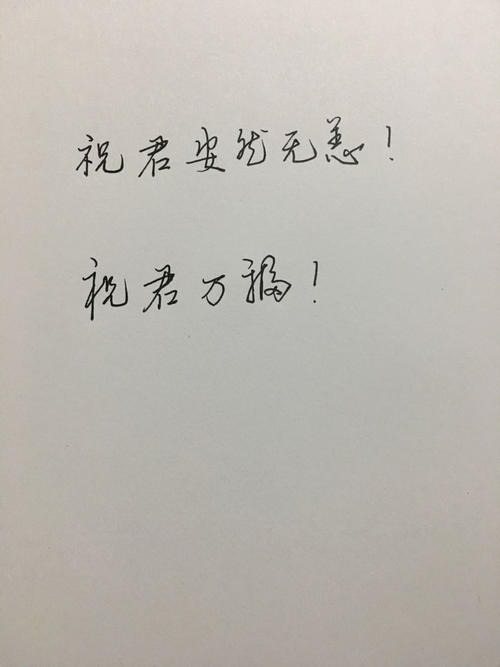 祝君安然无恙!
祝君万福!